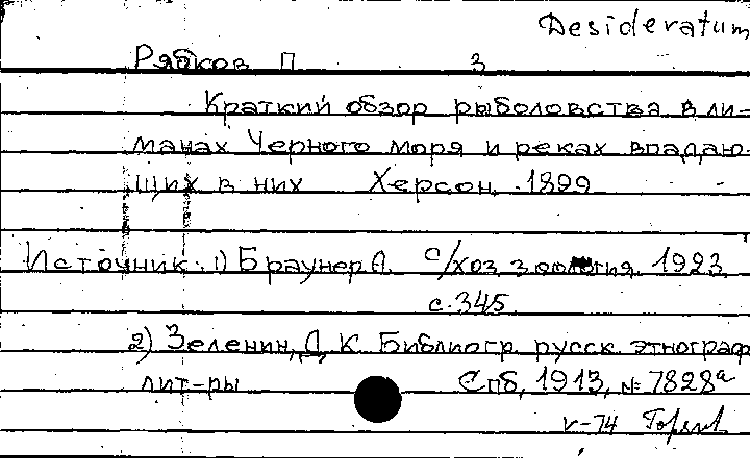 Desideratum
Рябков П. З
Краткий обзор рыболовства в ли-
манах Черного моря и реках впадаю-
щих в них Херсон. 1899
Источник: 1) Браунер А. с/хоз. зоология. 1923
с. 345
2) Зеленин, Д. К. Библиогр. русск. этнограф
лит-ры Спб, 1913, № 7828а
V-74